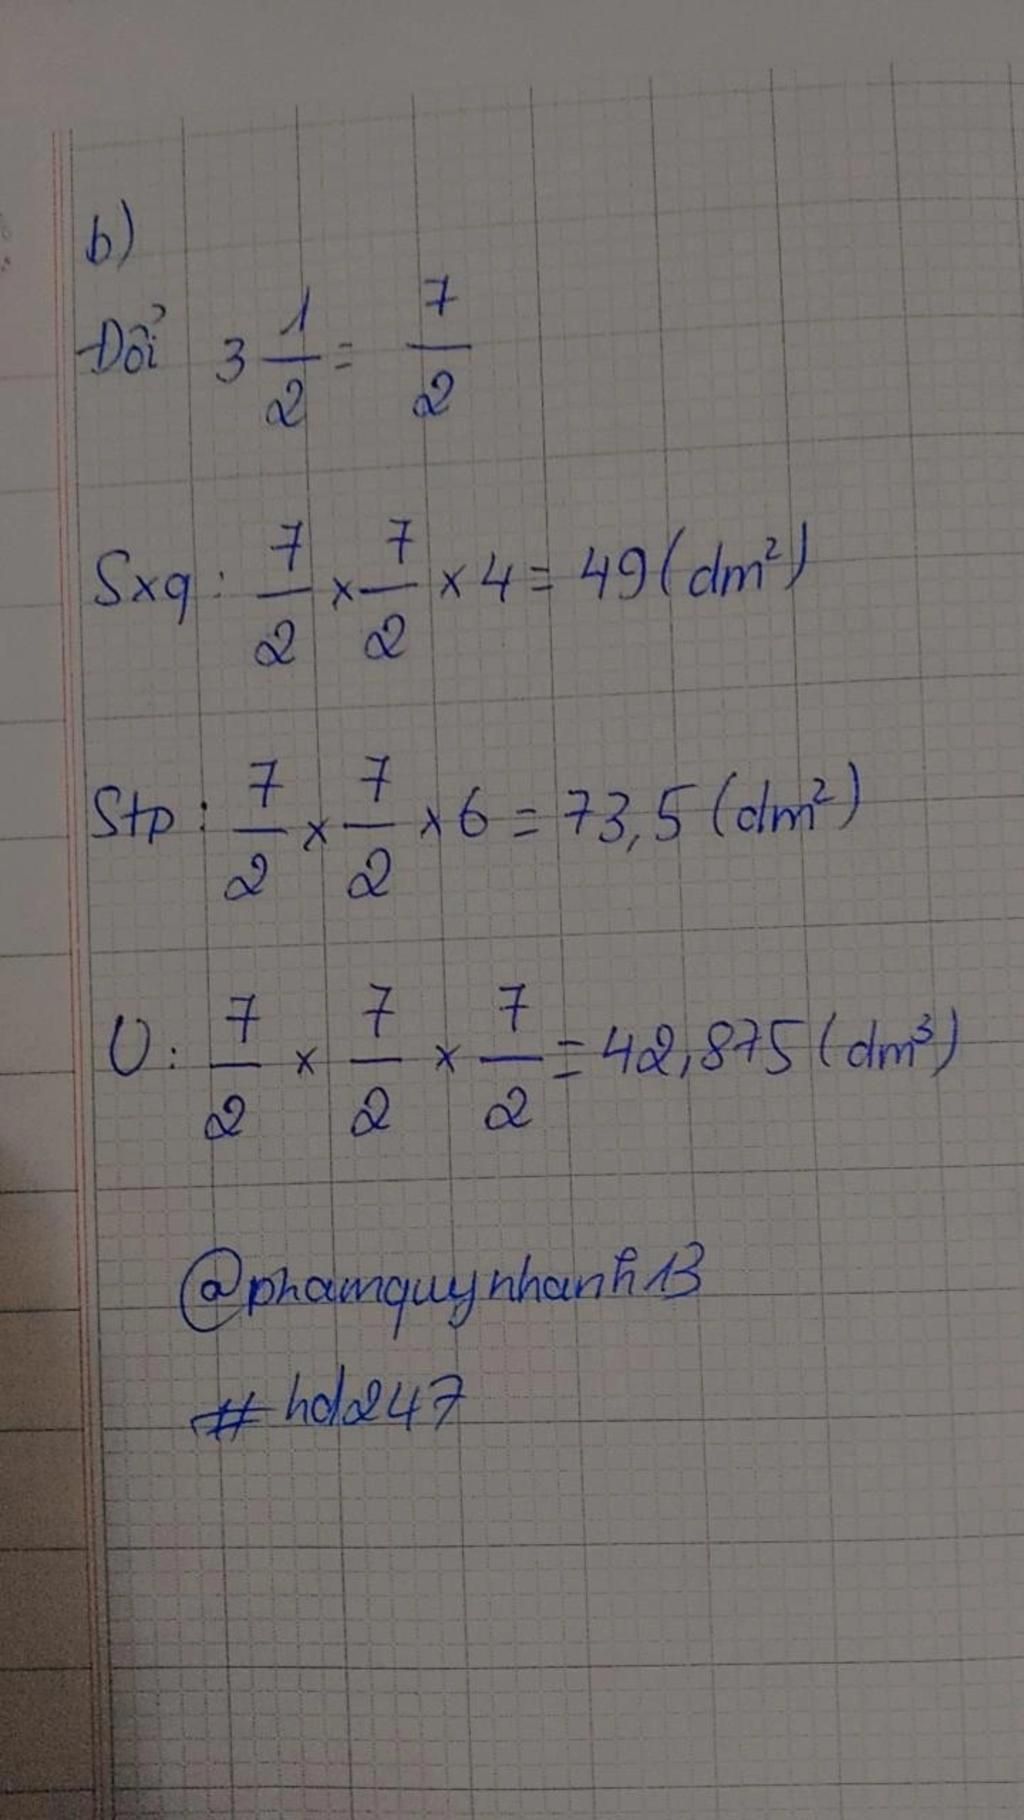 b)
Đổi 3 1/2 = 7/2
Sxq: 7/2 × 7/2 × 4 = 49 (dm²)
Stp: 7/2 × 7/2 × 6 = 73,5 (dm²)
V: 7/2 × 7/2 × 7/2 = 42,875 (dm³)
@phamquynhanh13
#hd247